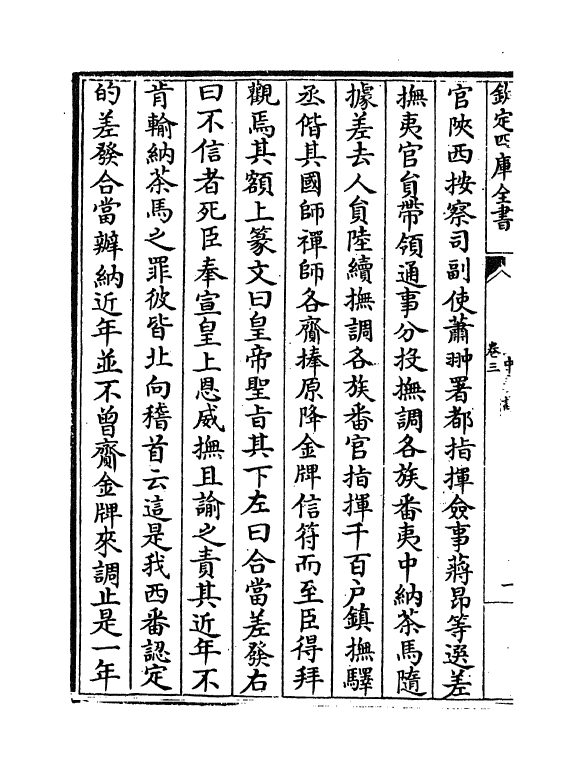 欽定四庫全書
卷三
官陝西按察司副使蕭翀署都指揮僉事蔣昂等選差
撫夷官員帶領通事分投撫調各族番夷中納茶馬隨
據差去人員陸續撫調各族番官指揮千百户鎮撫驛
丞偕其國師禪師各齎捧原降金牌信符而至臣得拜
觀焉其額上篆文曰皇帝聖㫖其下左曰合當差發右
曰不信者死臣奉宣皇上恩威撫且諭之責其近年不
肯輸納茶馬之罪彼皆北向稽首云這是我西番認定
的差發合當辦納近年並不曾齎金牌來調止是一年